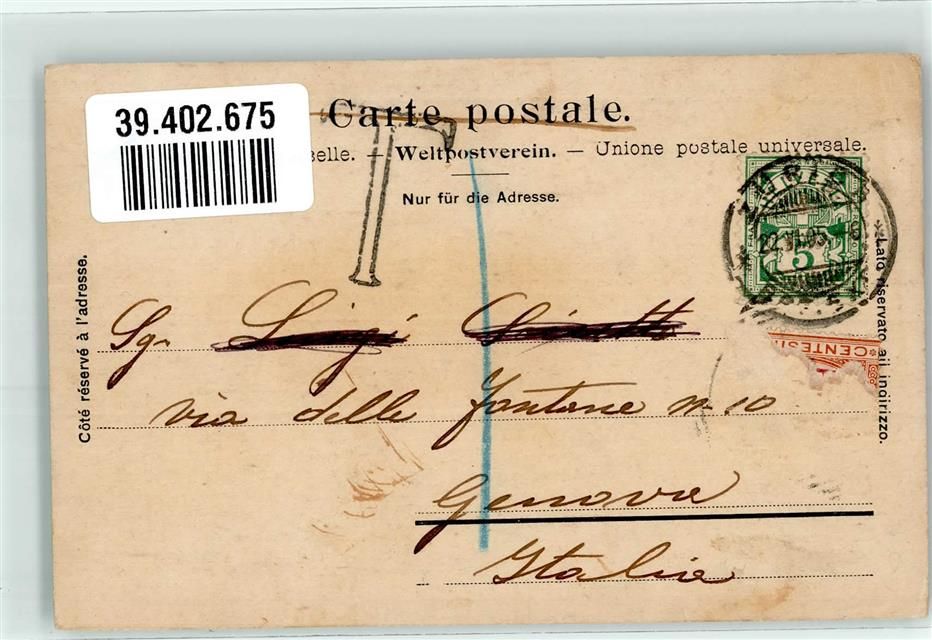 39.402.675
Carte postale.
selle. — Weltpostverein. — Unione postale universale.
Nur für die Adresse.
T
Côté réservé à l'adresse.
Lato riservato all indirizzo.
5
22.VI.05.
CENTESI
Sgr Luigi
via delle Fontane N. 10
Genova
Italia